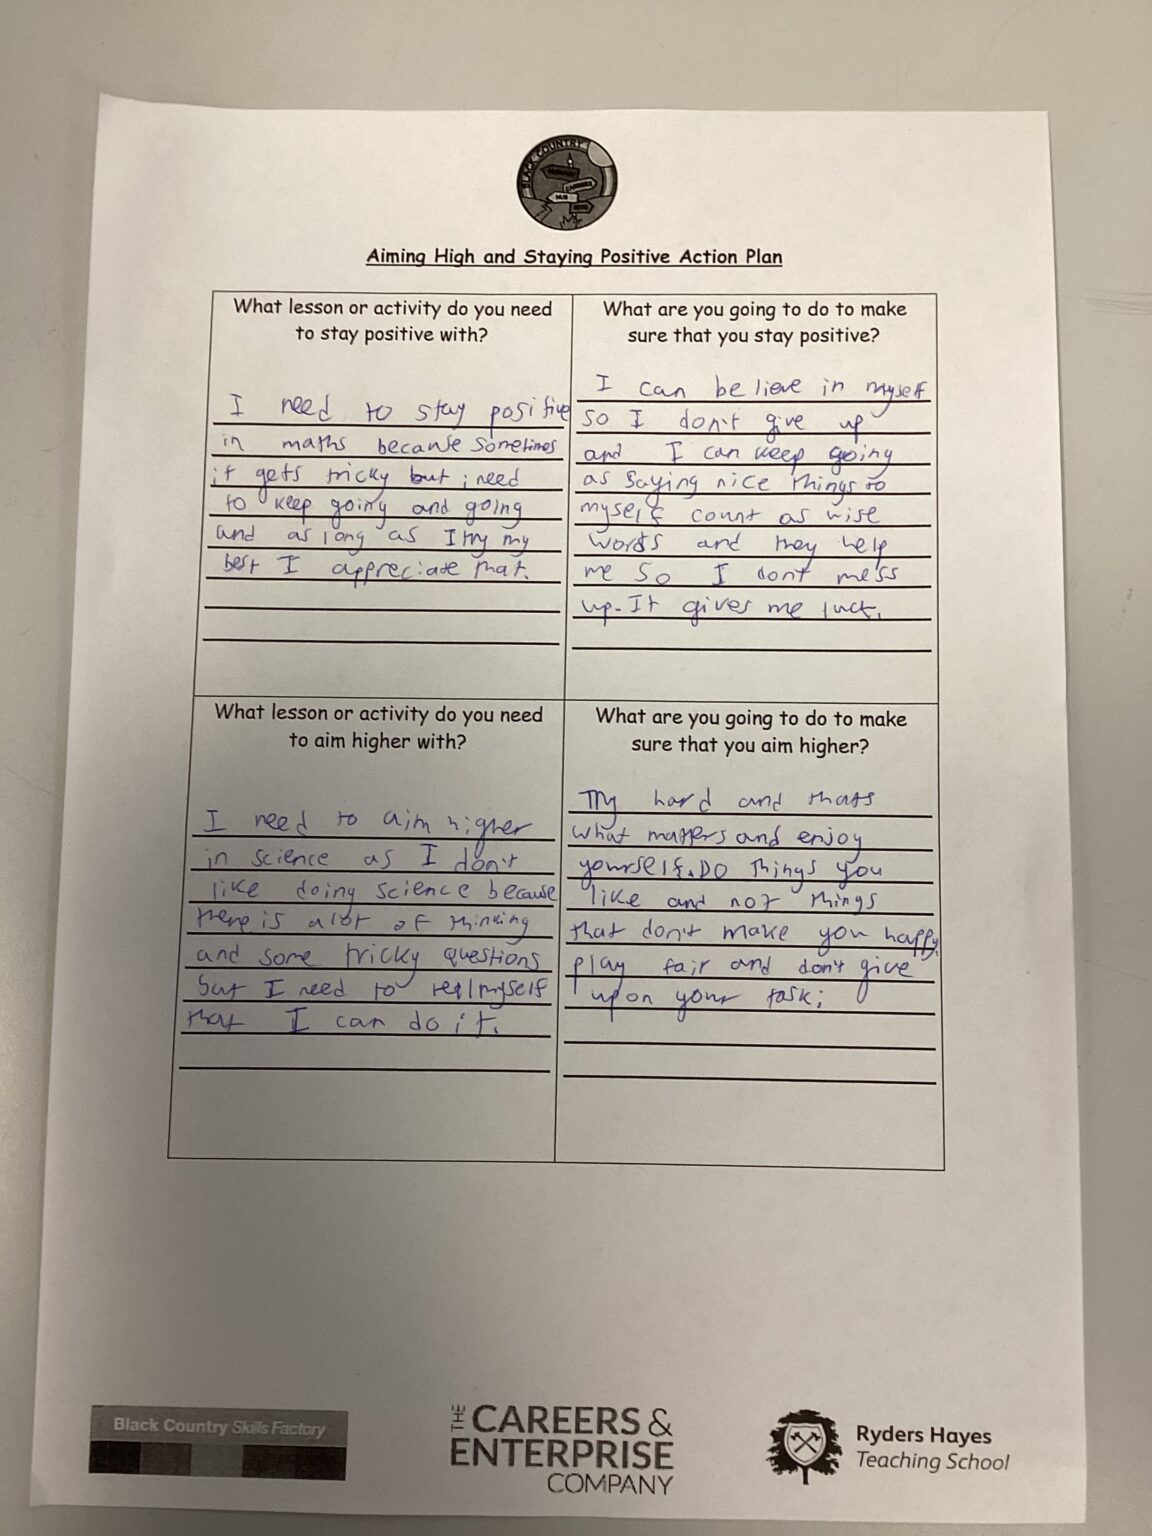 BLACK COUNTRY
CAREERS
HUB
Aiming High and Staying Positive Action Plan
What lesson or activity do you need
to stay positive with?
I need to stay positive
in maths because sometimes
it gets tricky but i need
to keep going and going
and as long as I try my
best I appreciate that.
What are you going to do to make
sure that you stay positive?
I can believe in myself
so I don't give up
and I can keep going
as saying nice things to
myself count as wise
words and they help
me so I dont mess
up. It gives me luck.
What lesson or activity do you need
to aim higher with?
I need to aim higher
in science as I don't
like doing science because
there is alot of thinking
and some tricky questions
but I need to myself
that I can do it.
What are you going to do to make
sure that you aim higher?
Try hard and thats
what matters and enjoy
yourself. Do things you
like and not things
that don't make you happy
play fair and don't give
up on your task;
Black Country Skills Factory
THE CAREERS &
ENTERPRISE
COMPANY
Ryders Hayes
Teaching School